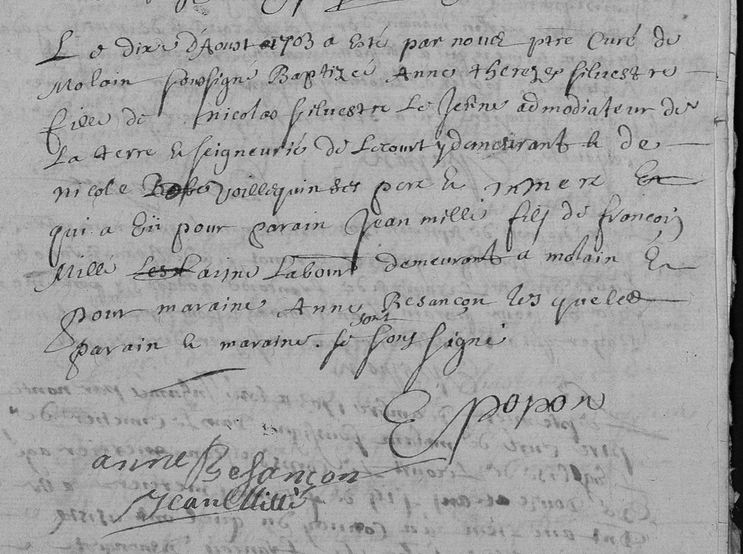 Le dixe d'Aoust 1703 a esté par nous ptre Curé de
Molain soussigné Baptizée Anne thereze silvestre
fille de nicolas silvestre Le Jeune admodiateur de
La terre & seigneurie de Lecourt y demeurant & de
nicole voillequin ses pere & mere
qui a Eü pour parain Jean millé filz de françois
Millé Labour demeurant a molain &
pour maraine Anne Besançon lesqueles
parain & maraine se sont sous signé
E popon
anne Besançon
Jean Millé